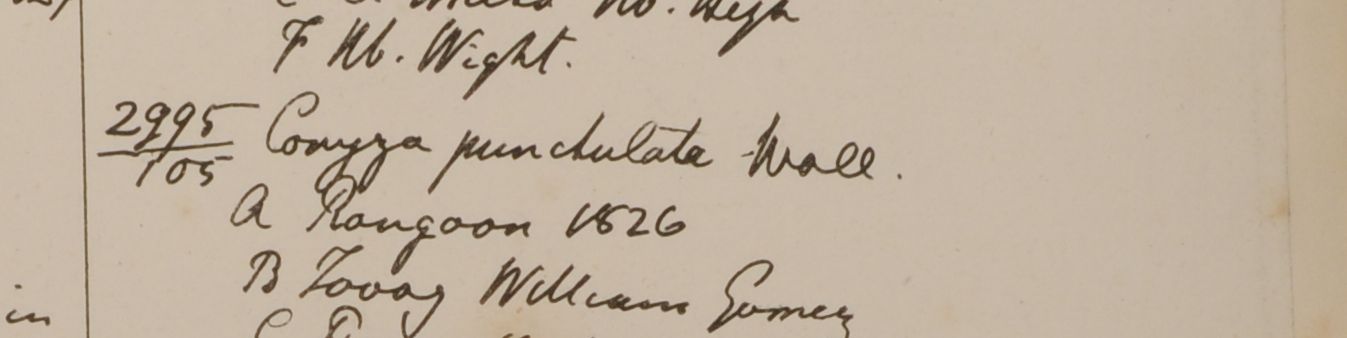 F Hb. Wight.
2995/105 Conyza punctulata Wall.
A Rangoon 1826
B Tavoy William Gomez
in